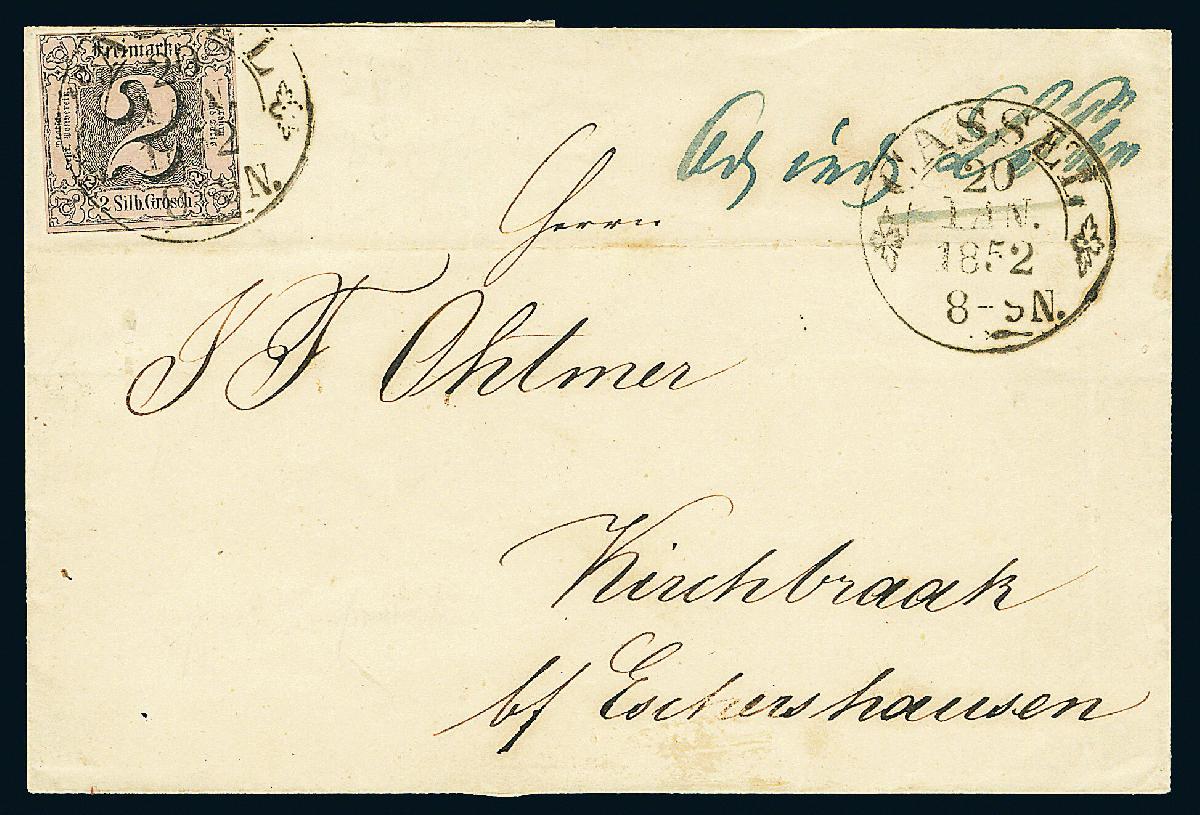 Freimarke
2
2 Silb. Grosch
N.
CASSEL
20
JAN.
1852
8-9 N.
Herrn
J F Ohlmer
Kirchbraak
b/ Eschershausen